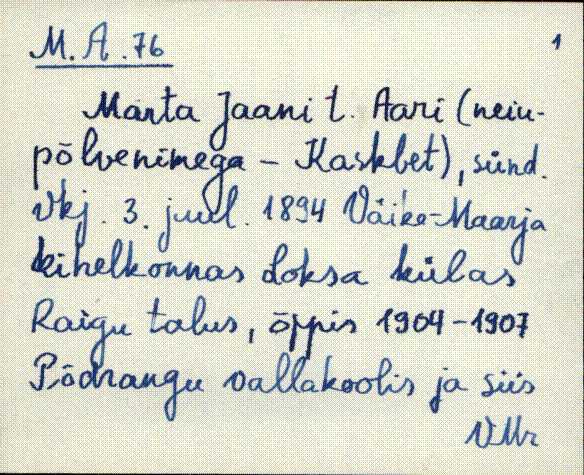 M. A. 76
1
Marta Jaani t. Aari (neiu-
põlvenimega – Kaskbet), sünd.
Vkj. 3. juul. 1894 Väike-Maarja
kihelkonnas Loksa külas
Raigu talus, õppis 1904–1907
Põdrangu vallakoolis ja siis
VMr